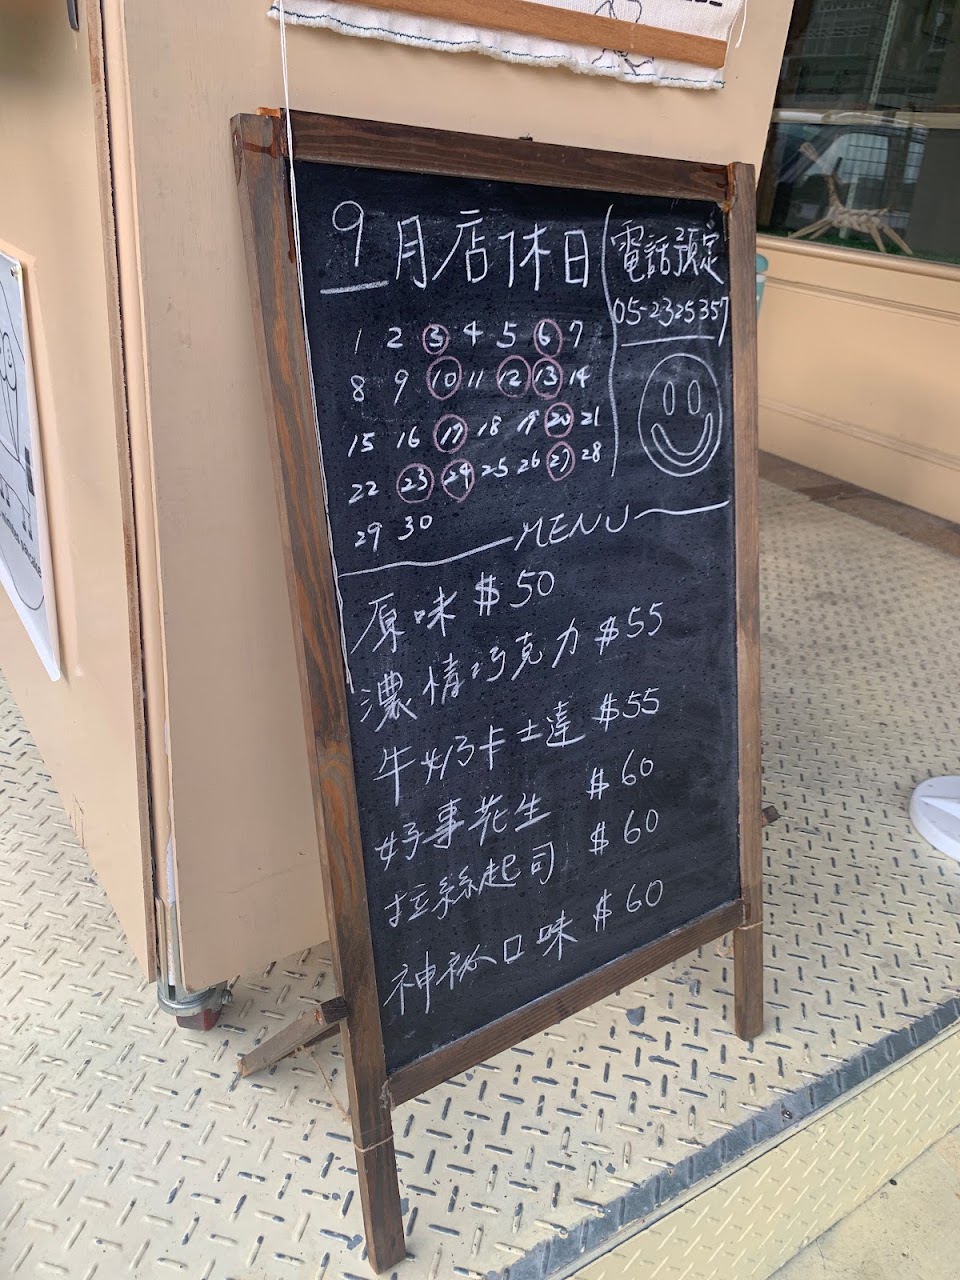 9月店休日
電話預定
05-2325357
1 2 3 4 5 6 7
8 9 10 11 12 13 14
15 16 17 18 19 20 21
22 23 24 25 26 27 28
29 30
MENU
原味 $50
濃情巧克力 $55
牛奶卡士達 $55
好事花生 $60
拉絲起司 $60
神祕口味 $60